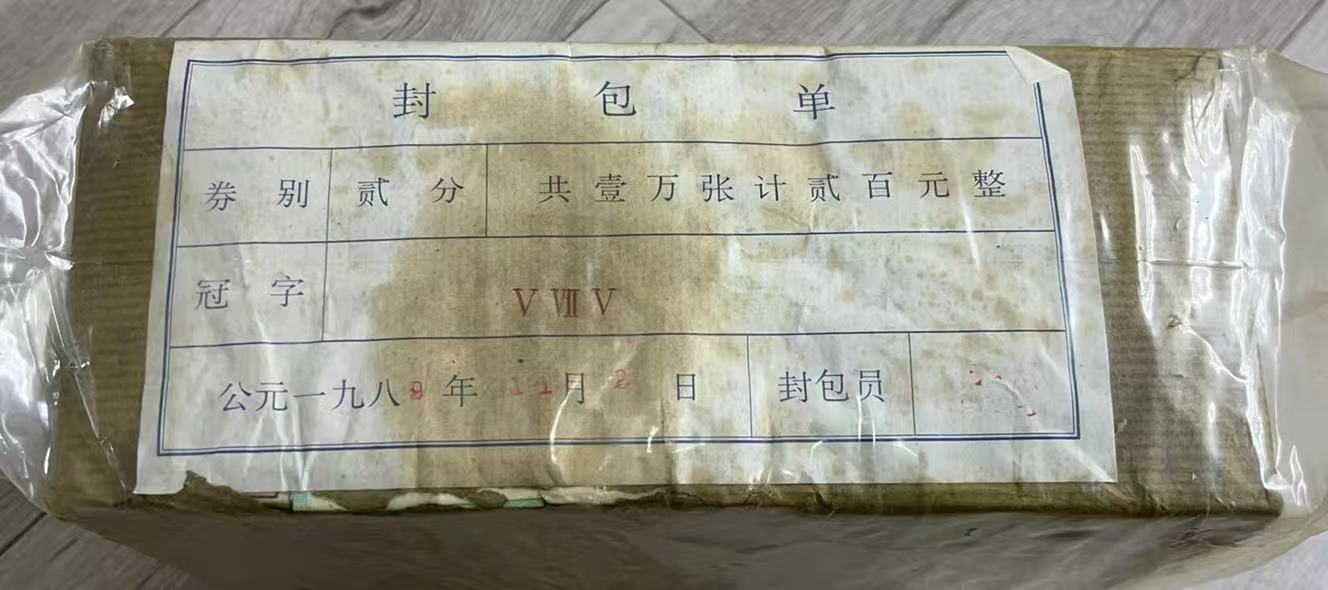 封包单
券别 贰分 共壹万张计贰百元整
冠字 ⅤⅦⅤ
公元一九八9年11月2日 封包员